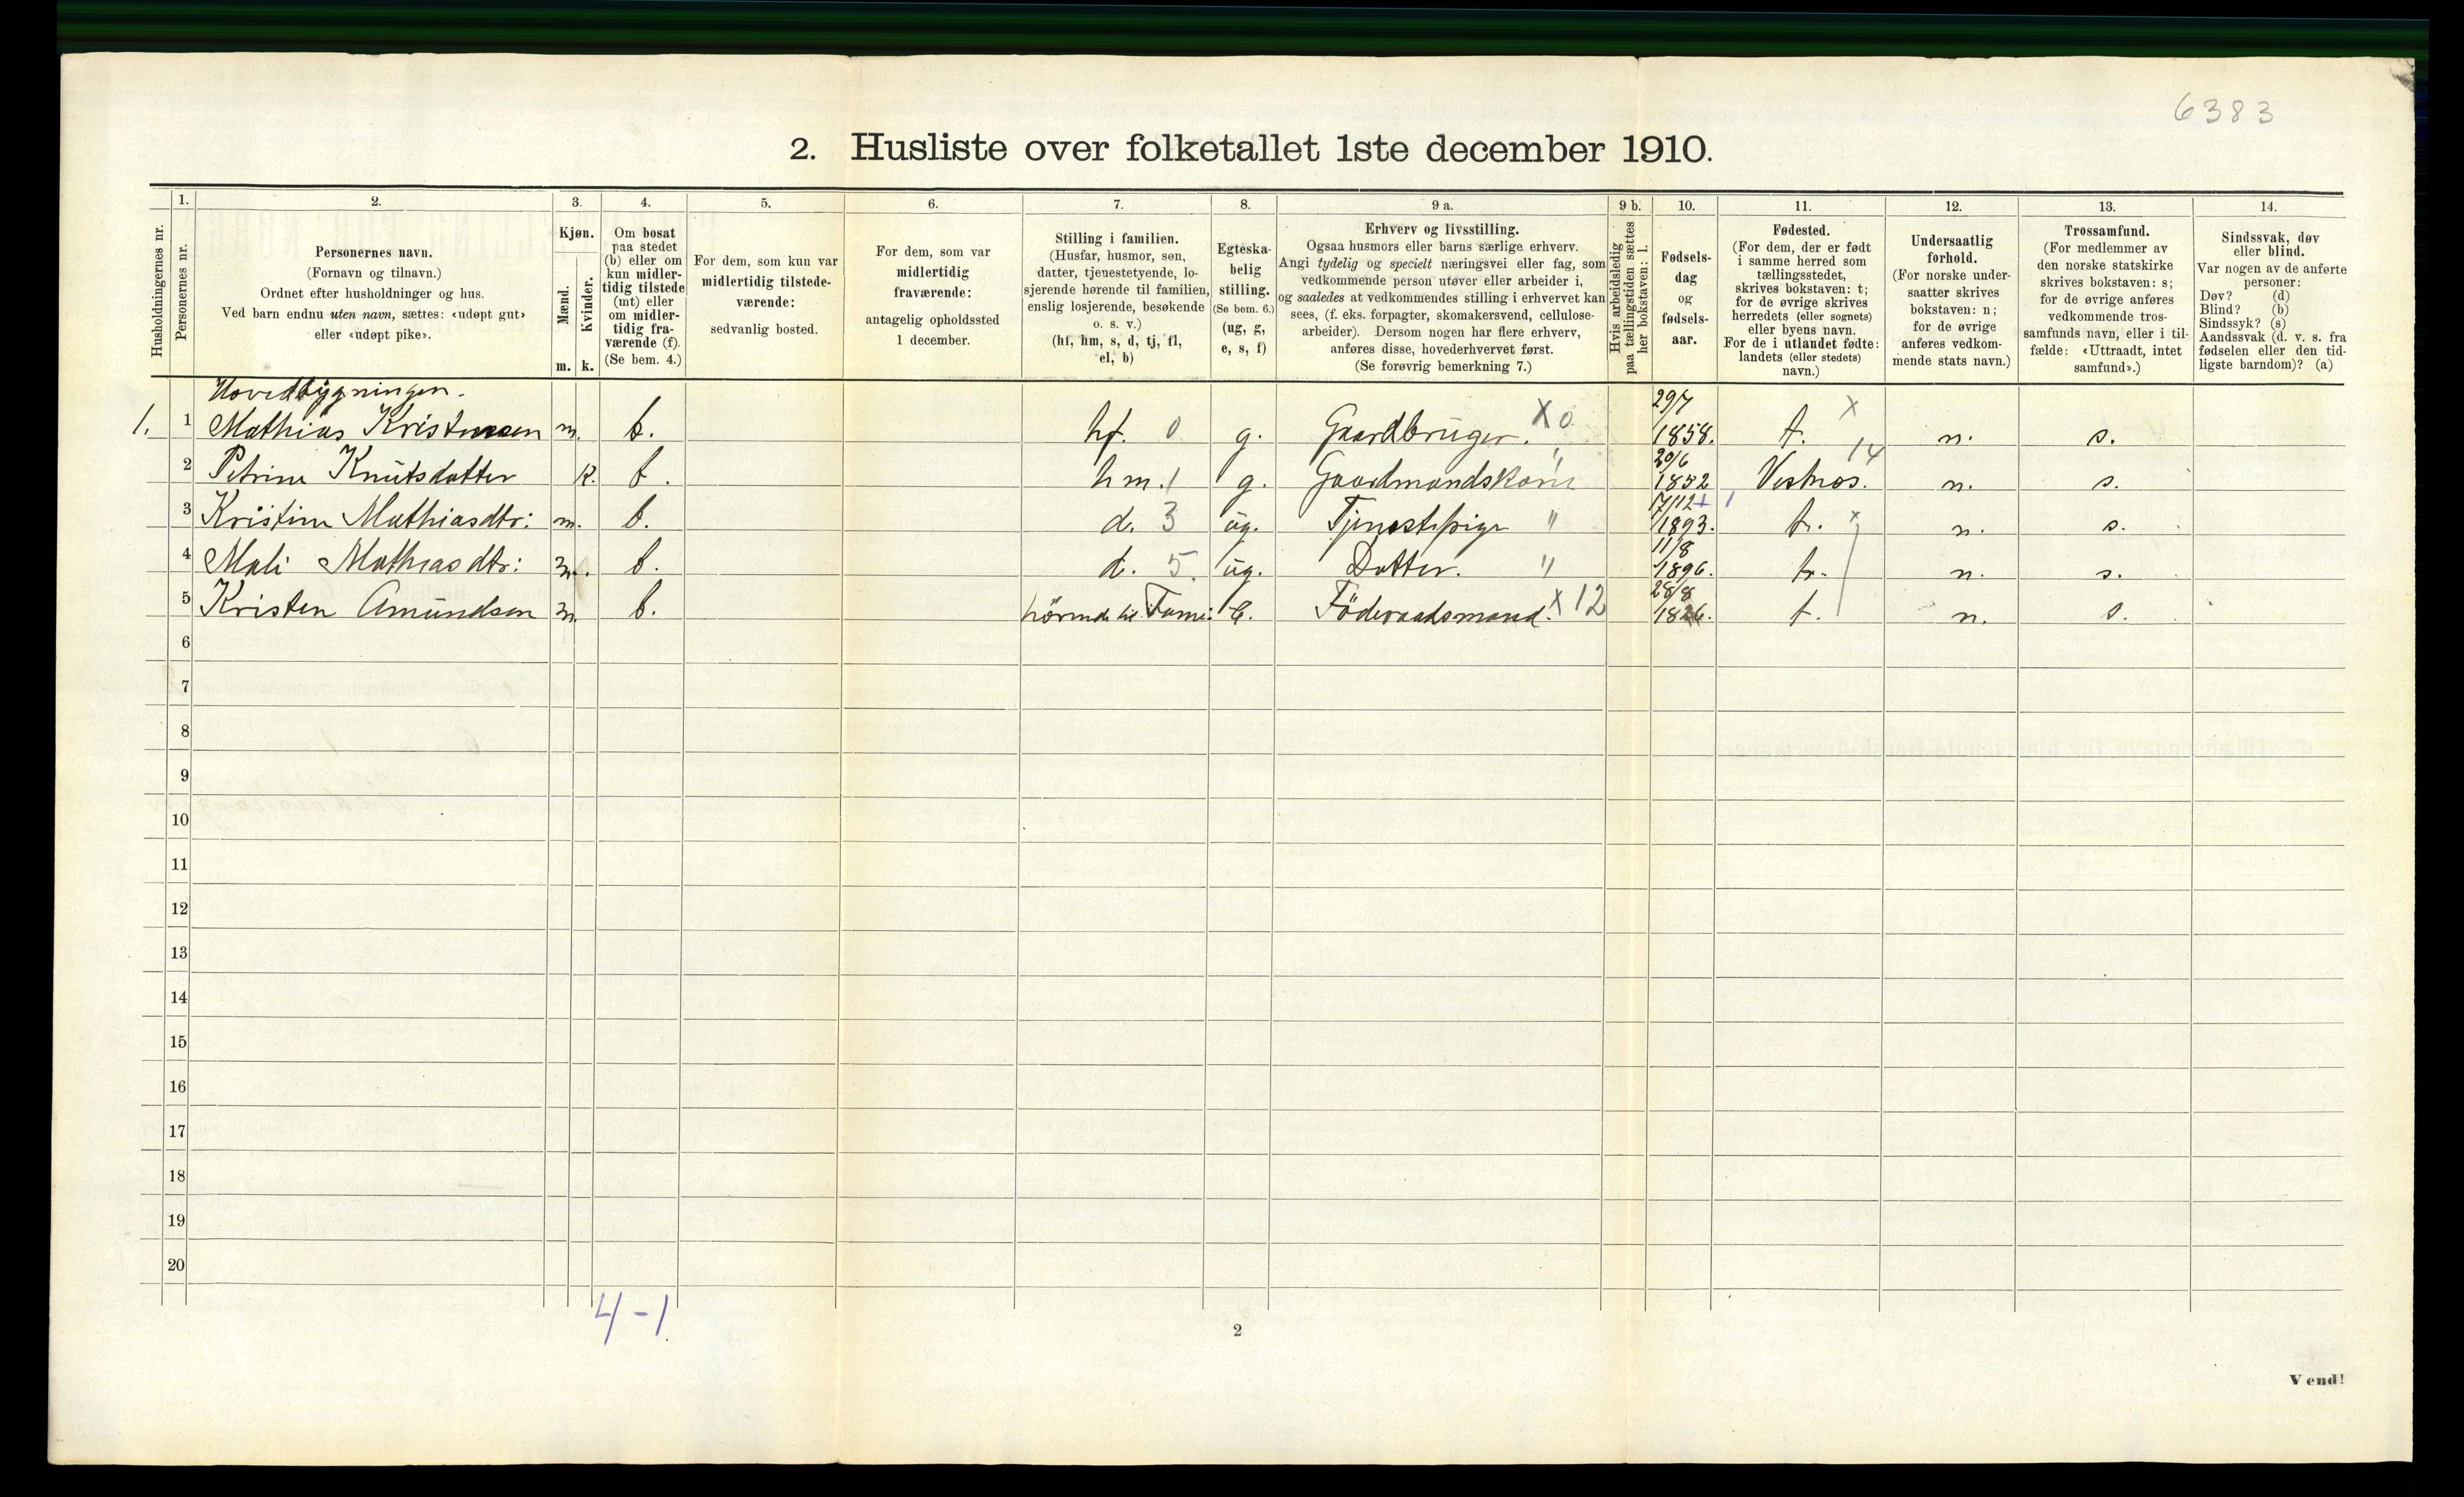 6383
2. Husliste over folketallet 1ste december 1910.
Husholdningernes nr.
1.
Personernes nr.
2.
Personernes navn.
(Fornavn og tilnavn.)
Ordnet efter husholdninger og hus.
Ved barn endnu uten navn, sættes: «udøpt gut»
eller «udøpt pike».
3.
Kjøn.
Mænd.
Kvinder.
m. k.
4.
Om bosat
paa stedet
(b) eller om
kun midler-
tidig tilstede
(mt) eller
om midler-
tidig fra-
værende (f).
(Se bem. 4.)
5.
For dem, som kun var
midlertidig tilstede-
værende:
sedvanlig bosted.
6.
For dem, som var
midlertidig
fraværende:
antagelig opholdssted
1 december.
7.
Stilling i familien.
(Husfar, husmor, søn,
datter, tjenestetyende, lo-
sjerende hørende til familien,
enslig losjerende, besøkende
o. s. v.)
(hf, hm, s, d, tj, fl,
el, b)
8.
Egteska-
belig
stilling.
(Se bem. 6.)
(ug, g,
e, s, f)
9 a.
Erhverv og livsstilling.
Ogsaa husmors eller barns særlige erhverv.
Angi tydelig og specielt næringsvei eller fag, som
vedkommende person utøver eller arbeider i,
og saaledes at vedkommendes stilling i erhvervet kan
sees, (f. eks. forpagter, skomakersvend, cellulose-
arbeider). Dersom nogen har flere erhverv,
anføres disse, hovederhvervet først.
(Se forøvrig bemerkning 7.)
9 b.
Hvis arbeidsledig
paa tællingstiden sættes
her bokstaven: l.
10.
Fødsels-
dag
og
fødsels-
aar.
11.
Fødested.
(For dem, der er født
i samme herred som
tællingsstedet,
skrives bokstaven: t;
for de øvrige skrives
herredets (eller sognets)
eller byens navn.
For de i utlandet fødte:
landets (eller stedets)
navn.)
12.
Undersaatlig
forhold.
(For norske under-
saatter skrives
bokstaven: n;
for de øvrige
anføres vedkom-
mende stats navn.)
13.
Trossamfund.
(For medlemmer av
den norske statskirke
skrives bokstaven: s;
for de øvrige anføres
vedkommende tros-
samfunds navn, eller i til-
fælde: «Uttraadt, intet
samfund».)
14.
Sindssvak, døv
eller blind.
Var nogen av de anførte
personer:
Døv? (d)
Blind? (b)
Sindssyk? (s)
Aandssvak (d. v. s. fra
fødselen eller den tid-
ligste barndom)? (a)
Hovedbygningen.
1. 1 Mathias Kristensen m. b. hf. 0 g. Gaardbruger. X 0 29/7 1858. t. X n. s.
2 Petrine Knutsdatter k. b. hm. 1 g. Gaardmandskone " 20/6 1852 Vestnes. 14 n. s.
3 Kristine Mathiasdtr: m. b. d. 3 ug. Tjenestepige " 17/12 1893. t. x n. s.
4 Mali Mathiasdtr: m. b. d. 5. ug. Datter. " 11/8 1896. t. n. s.
5 Kristen Amundsen m. b. hörende til Fami: e. Föderaadsmand. X 12 28/8 1826. t. n. s.
6
7
8
9
10
11
12
13
14
15
16
17
18
19
20
4-1
2
Vend!